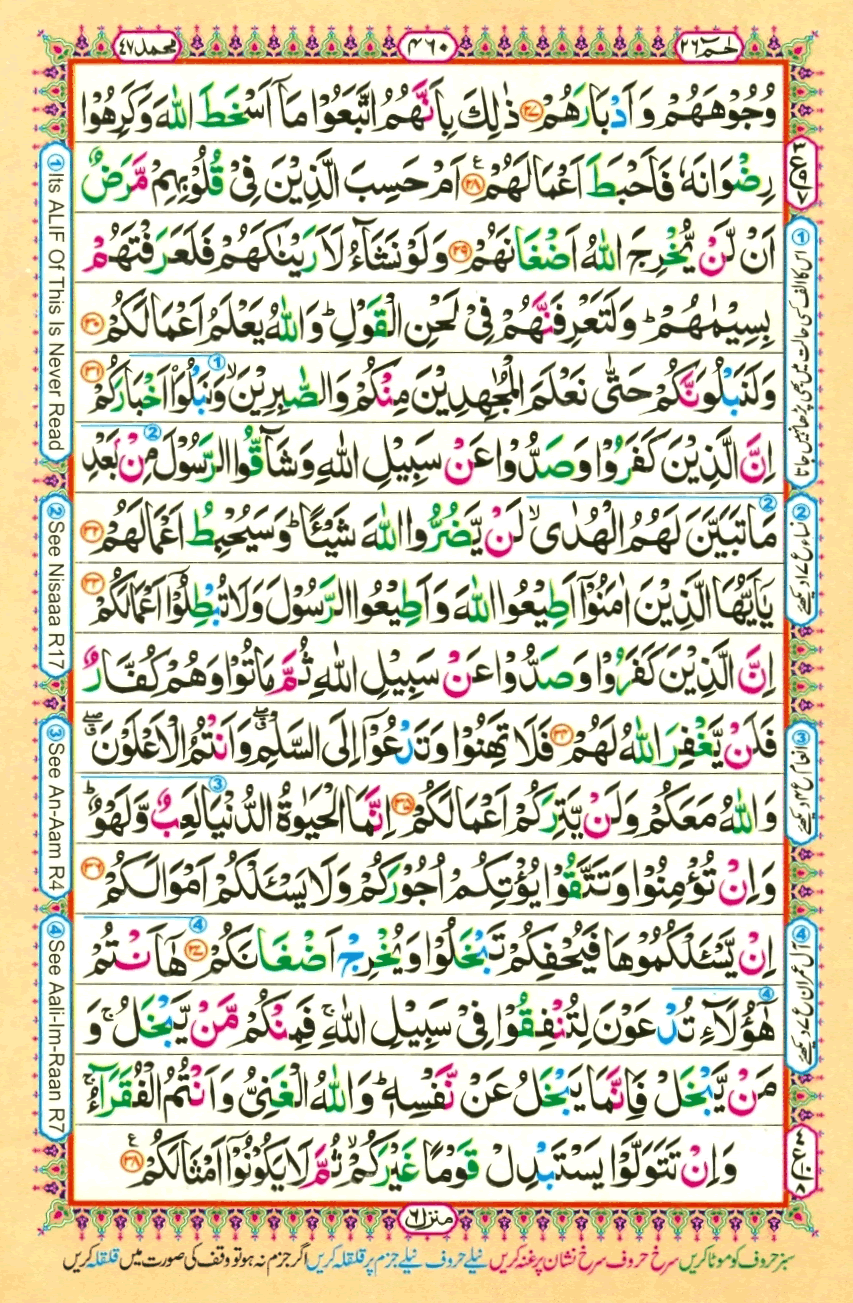 محمد ٤٧
٤٦٠
حٰمٓ ٢٦
وُجُوْهَهُمْ وَاَدْبَارَهُمْ ﴿۲۷﴾ ذٰلِكَ بِاَنَّهُمُ اتَّبَعُوْا مَاۤ اَسْخَطَ اللّٰهَ وَكَرِهُوْا
رِضْوَانَهٗ فَاَحْبَطَ اَعْمَالَهُمْ ﴿۲۸﴾ اَمْ حَسِبَ الَّذِيْنَ فِىْ قُلُوْبِهِمْ مَّرَضٌ
اَنْ لَّنْ يُّخْرِجَ اللّٰهُ اَضْغَانَهُمْ ﴿۲۹﴾ وَلَوْ نَشَآءُ لَاَرَيْنٰكَهُمْ فَلَعَرَفْتَهُمْ
بِسِيْمٰهُمْ ؕ وَلَتَعْرِفَنَّهُمْ فِىْ لَحْنِ الْقَوْلِ ؕ وَاللّٰهُ يَعْلَمُ اَعْمَالَكُمْ ﴿۳۰﴾
وَلَنَبْلُوَنَّكُمْ حَتّٰى نَعْلَمَ الْمُجٰهِدِيْنَ مِنْكُمْ وَالصّٰبِرِيْنَ ۙ وَنَبْلُوَا۟ اَخْبَارَكُمْ ﴿۳۱﴾
اِنَّ الَّذِيْنَ كَفَرُوْا وَصَدُّوْا عَنْ سَبِيْلِ اللّٰهِ وَشَآقُّوا الرَّسُوْلَ مِنْۢ بَعْدِ
مَا تَبَيَّنَ لَهُمُ الْهُدٰى ۙ لَنْ يَّضُرُّوا اللّٰهَ شَيْـًٔا ؕ وَسَيُحْبِطُ اَعْمَالَهُمْ ﴿۳۲﴾
يٰۤاَيُّهَا الَّذِيْنَ اٰمَنُوْۤا اَطِيْعُوا اللّٰهَ وَاَطِيْعُوا الرَّسُوْلَ وَلَا تُبْطِلُوْۤا اَعْمَالَكُمْ ﴿۳۳﴾
اِنَّ الَّذِيْنَ كَفَرُوْا وَصَدُّوْا عَنْ سَبِيْلِ اللّٰهِ ثُمَّ مَاتُوْا وَهُمْ كُفَّارٌ
فَلَنْ يَّغْفِرَ اللّٰهُ لَهُمْ ﴿۳۴﴾ فَلَا تَهِنُوْا وَتَدْعُوْۤا اِلَى السَّلْمِ ۖۗ وَاَنْتُمُ الْاَعْلَوْنَ ۖۗ
وَاللّٰهُ مَعَكُمْ وَلَنْ يَّتِرَكُمْ اَعْمَالَكُمْ ﴿۳۵﴾ اِنَّمَا الْحَيٰوةُ الدُّنْيَا لَعِبٌ وَّلَهْوٌ ؕ
وَاِنْ تُؤْمِنُوْا وَتَتَّقُوْا يُؤْتِكُمْ اُجُوْرَكُمْ وَلَا يَسْـَٔلْكُمْ اَمْوَالَكُمْ ﴿۳۶﴾
اِنْ يَّسْـَٔلْكُمُوْهَا فَيُحْفِكُمْ تَبْخَلُوْا وَيُخْرِجْ اَضْغَانَكُمْ ﴿۳۷﴾ هٰۤاَنْتُمْ
هٰٓؤُلَآءِ تُدْعَوْنَ لِتُنْفِقُوْا فِىْ سَبِيْلِ اللّٰهِ ۚ فَمِنْكُمْ مَّنْ يَّبْخَلُ ۚ وَ
مَنْ يَّبْخَلْ فَاِنَّمَا يَبْخَلُ عَنْ نَّفْسِهٖ ؕ وَاللّٰهُ الْغَنِىُّ وَاَنْتُمُ الْفُقَرَآءُ ۚ
وَاِنْ تَتَوَلَّوْا يَسْتَبْدِلْ قَوْمًا غَيْرَكُمْ ۙ ثُمَّ لَا يَكُوْنُوْۤا اَمْثَالَكُمْ ﴿۳۸﴾
① Its ALIF Of This Is Never Read
② See Nisaaa R17
③ See An-Aam R4
④ See Aali-Im-Raan R7
① اس کا الف کسی حالت میں بھی پڑھا نہیں جاتا
② نساء ع ۱۷ دیکھئے
③ انعام ع ۴ دیکھئے
④ آل عمران ع ۷ دیکھئے
منزل ٦
سبز حروف کو موٹا کریں سرخ حروف سرخ نشان پر غنہ کریں نیلے حروف نیلے جزم پر قلقلہ کریں اگر جزم نہ ہو تو وقف کی صورت میں قلقلہ کریں